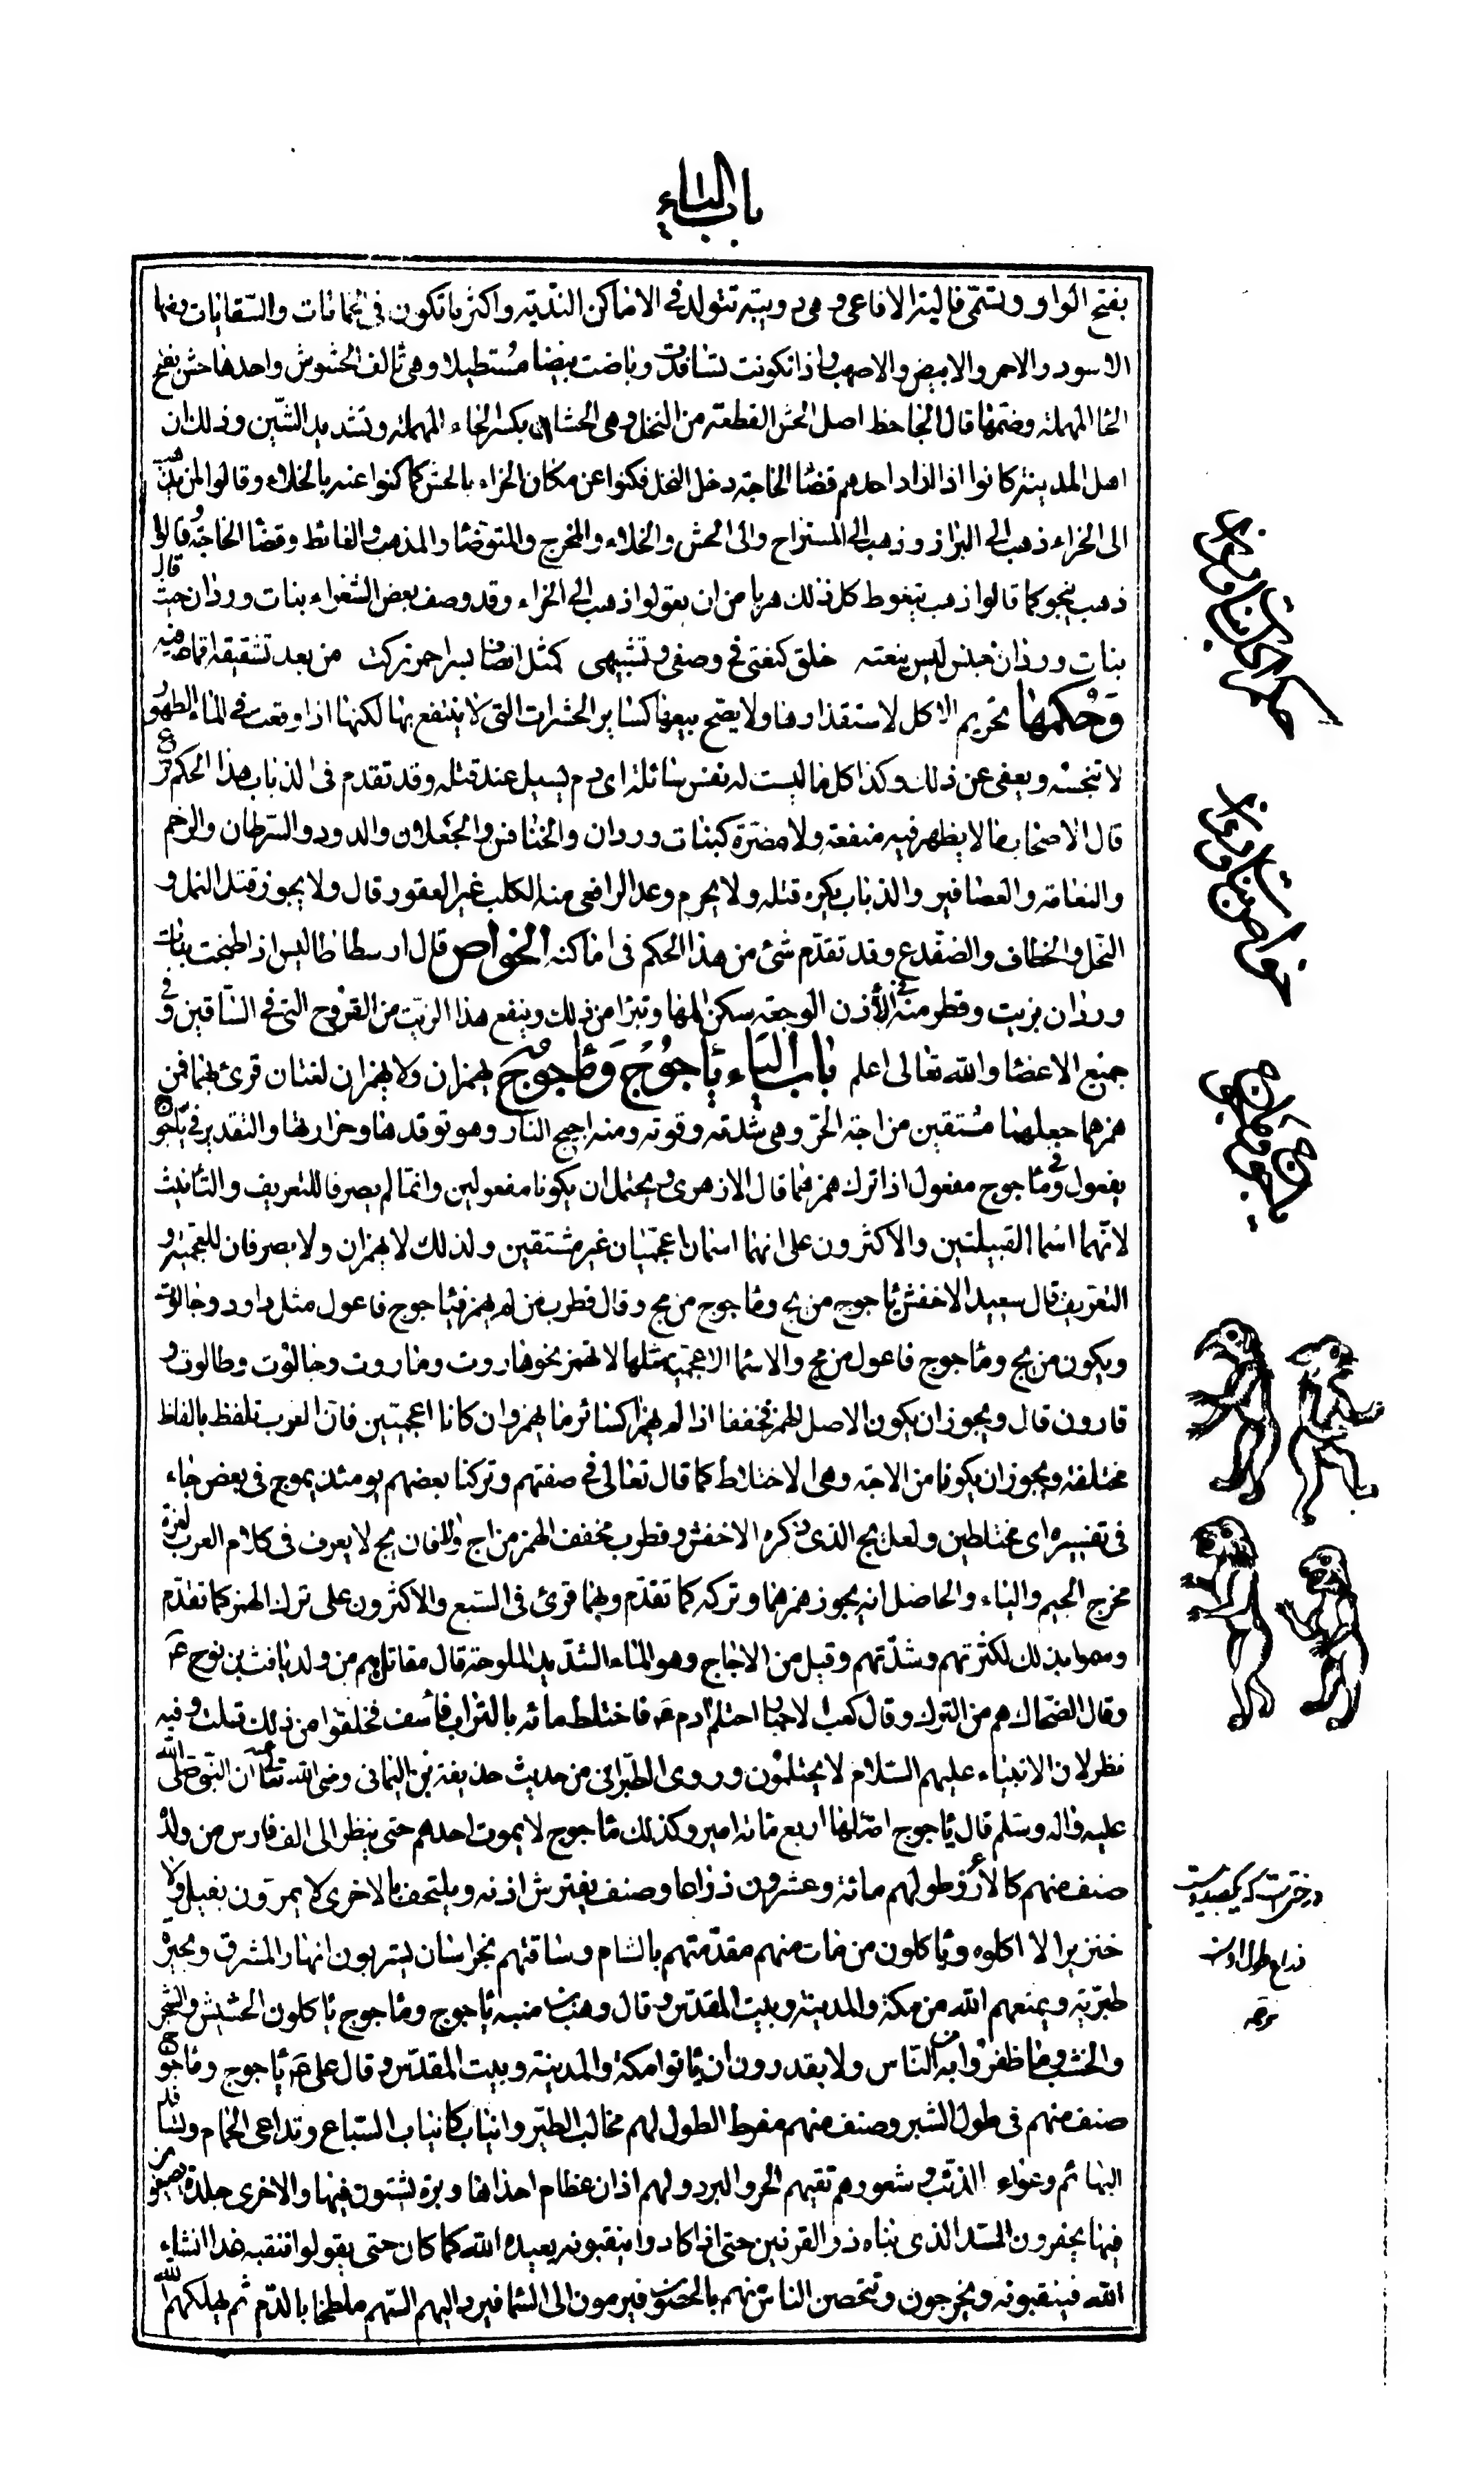 باب الیاء
بفتح الواو وتسمّى فالية الافاعى وهى دويبة تتولد فى الاماكن النّدية واكثر ما تكون فى الحمامات والسّقايات ومنها
الاسود والاحمر والابيض والاصهب واذا تكونت تسافدت وباضت بيضا مستطيلا وهى تألف الحشوش واحدها حش بفتح
الحا المهملة وضمّها قال الجاحظ اصل الحش القطعة من النخل وهى الحشان بكسر الحاء المهملة وتشديد الشّين وذلك ان
اهل المدينة كانوا اذا اراد احدهم قضا الحاجة دخل النخل فكنوا عن مكان الخراء بالحش كما كنوا عنه بالخلاء وقالوا لمن يذهب
الى الخراء ذهب الى البراز وذهب الى المستراح والى الحش والخلاء والمخرج والمتوضا والمذهب والغائط وقضا الحاجة وقالوا
ذهب ينجو كما قالوا ذهب يتغوط كل ذلك هربا من ان يقولوا ذهب الى الخراء وقد وصف بعض الشعراء بنات وردان حيث قال
بنات وردان جنس ليس ينعته خلق كنعتى فى وصفى وتشبيهى كمثل انصاف بسر احمر تركت من بعد تشقيقه اقماعه فيه
وَحُكمها تحريم الاكل لاستقذارها ولا يصح بيعها كسا ير الحشرات التى لا ينتفع بها لكنها اذا وقعت فى الماء الطهور
لا تنجسه ويعفى عن ذلك وكذا كل ما ليست له نفس سائلة اى دم يسيل عند قتله وقد تقدم فى الذباب هذا الحكم فرع
قال الاصحاب ما لا يظهر فيه منفعة ولا مضرّة كبنات وردان والخنافس والجعلان والدود والسّرطان والرخم
والنعامة والعصافير والذباب يكره قتله ولا يحرم وعد الرافعى منه الكلب غير العقور قال ولا يجوز قتل النمل و
النّحل والخطاف والضفدع وقد تقدّم شئ من هذا الحكم فى اماكنه الخواص قال ارسطاطاليس اذا طبخت بنات
وردان بزيت وقطر منه فى الأذن الوجعة سكن المها وتبرا من ذلك وينفع هذا الزيت من القروح التى فى السّاقين وفى
جميع الاعضا والله تعالى اعلم باب الياء يأجوج وَمأجوج يهمزان ولا يهمزان لغتان قرئ بهما فمن
همزهما جعلهما مشتقين من اجة الحرّ وهى شدته وقوته ومنه اجيج النار وهو توقدها وحرارتها والتقدير فى يأجوج
يفعول وفى ماجوج مفعول اذا ترك همزهما قال الازهرى ويحتمل ان يكونا مفعولين وانما لم يصرفا للتعريف والتأنيث
لانّهما اسما القبيلتين والاكثرون على انهما اسمان اعجميان غير مشتقين ولذلك لا يهمزان ولا يصرفان للعجمية و
التعريف قال سعيد الاخفش ياجوج من يج وماجوج من مج وقال قطرب من لم يهمز فياجوج فاعول مثل داود وجالوت
ويكون من يج وماجوج فاعول من مج والاسما الاعجمية مثلها لا تهمز نحو هاروت وماروت وجالوت وطالوت و
قارون قال ويجوز ان يكون الاصل الهمز فخففا اذا لم يهمزا كسائر ما يهمز وان كانا اعجميتين فان العرب تلفظ بالفاظ
مختلفة ويجوز ان يكونا من الاجة وهى الاختلاط كما قال تعالى فى صفتهم وتركنا بعضهم يومئذ يموج فى بعض جاء
فى تفسيره اى مختلطين ولعل يج الذى ذكره الاخفش وقطرب مخفف الهمز من اج والا فان يج لا يعرف فى كلام العرب لعزة
مخرج الجيم والياء والحاصل انه يجوز همزهما وتركه كما تقدّم وبهما قرئ فى السّبع والاكثرون على ترك الهمز كما تقدّم
وسموا بذلك لكثرتهم وشدّتهم وقيل من الاجاج وهو الماء الشّديد الملوحة قال مقاتل هم من ولد يافث بن نوح ع
وقال الضحاك هم من الترك وقال كعب الاحبار احتلم ادم ع فاختلط مائه بالتراب فأسف فخلقوا من ذلك قلت وفيه
نظر لان الانبياء عليهم السّلام لا يحتلمون وروى الطبرانى من حديث حذيفة بن اليمانى رضى الله تعالى عنه ان النبى صلى الله
عليه واله وسلم قال ياجوج امّة لها اربع مائة امير وكذلك ماجوج لا يموت احدهم حتى ينظر الى الف فارس من ولده
صنف منهم كالأرز طولهم مائة وعشرون ذراعا وصنف يفترش اذنه ويلتحف بالاخرى لا يمرون بفيل ولا
خنزير الا اكلوه ويأكلون من مات منهم مقدّمتهم بالشام وساقتهم بخراسان يشربون انهار المشرق وبحيرة
طبرّية ويمنعهم الله من مكة والمدينة وبيت المقدّس وقال وهب بن منبه ياجوج وماجوج ياكلون الحشيش والشجر
والخشب وما ظفروا به من النّاس ولا يقدرون ان ياتوا مكة والمدينة وبيت المقدّس وقال على ع ياجوج وماجوج
صنف منهم فى طول الشبر وصنف منهم مفرط الطول لهم مخالب الطير وانياب كانياب السّباع وتداعى الحمام وتسافد
البهائم وعواء الذئب وشعورهم تقيهم الحر والبرد ولهم اذان عظام احداها وبرة يشتون فيها والاخرى جلدة يصيفون
فيها يحفرون السّد الذى بناه ذو القرنين حتى اذا كادوا ينقبونه يعيده الله كما كان حتى يقولوا ننقبه غدا انشاء
الله فينقبونه ويخرجون وتتحصن الناس منهم بالحصون فيرمون الى السّما فيرد اليهم السّهم ملطخا بالدّم ثم يهلكهم الله
حكم اكل بنات وردان
خواص بنات وردان
ياجوج وماجوج
درختى است كه يكصد وبيست
ذراع طول اوست